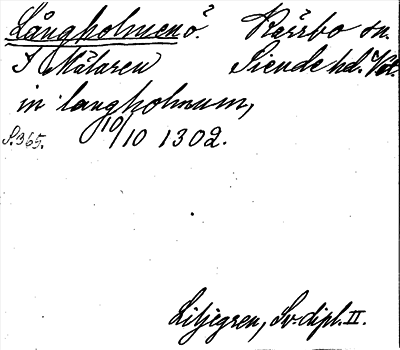 Långholmen ö. Kärrbo sn.
I Mälaren Siende hd. Vstm.
in langholmum,
S. 365. 10/10 1302.
Liljegren, Sv. dipl. II.